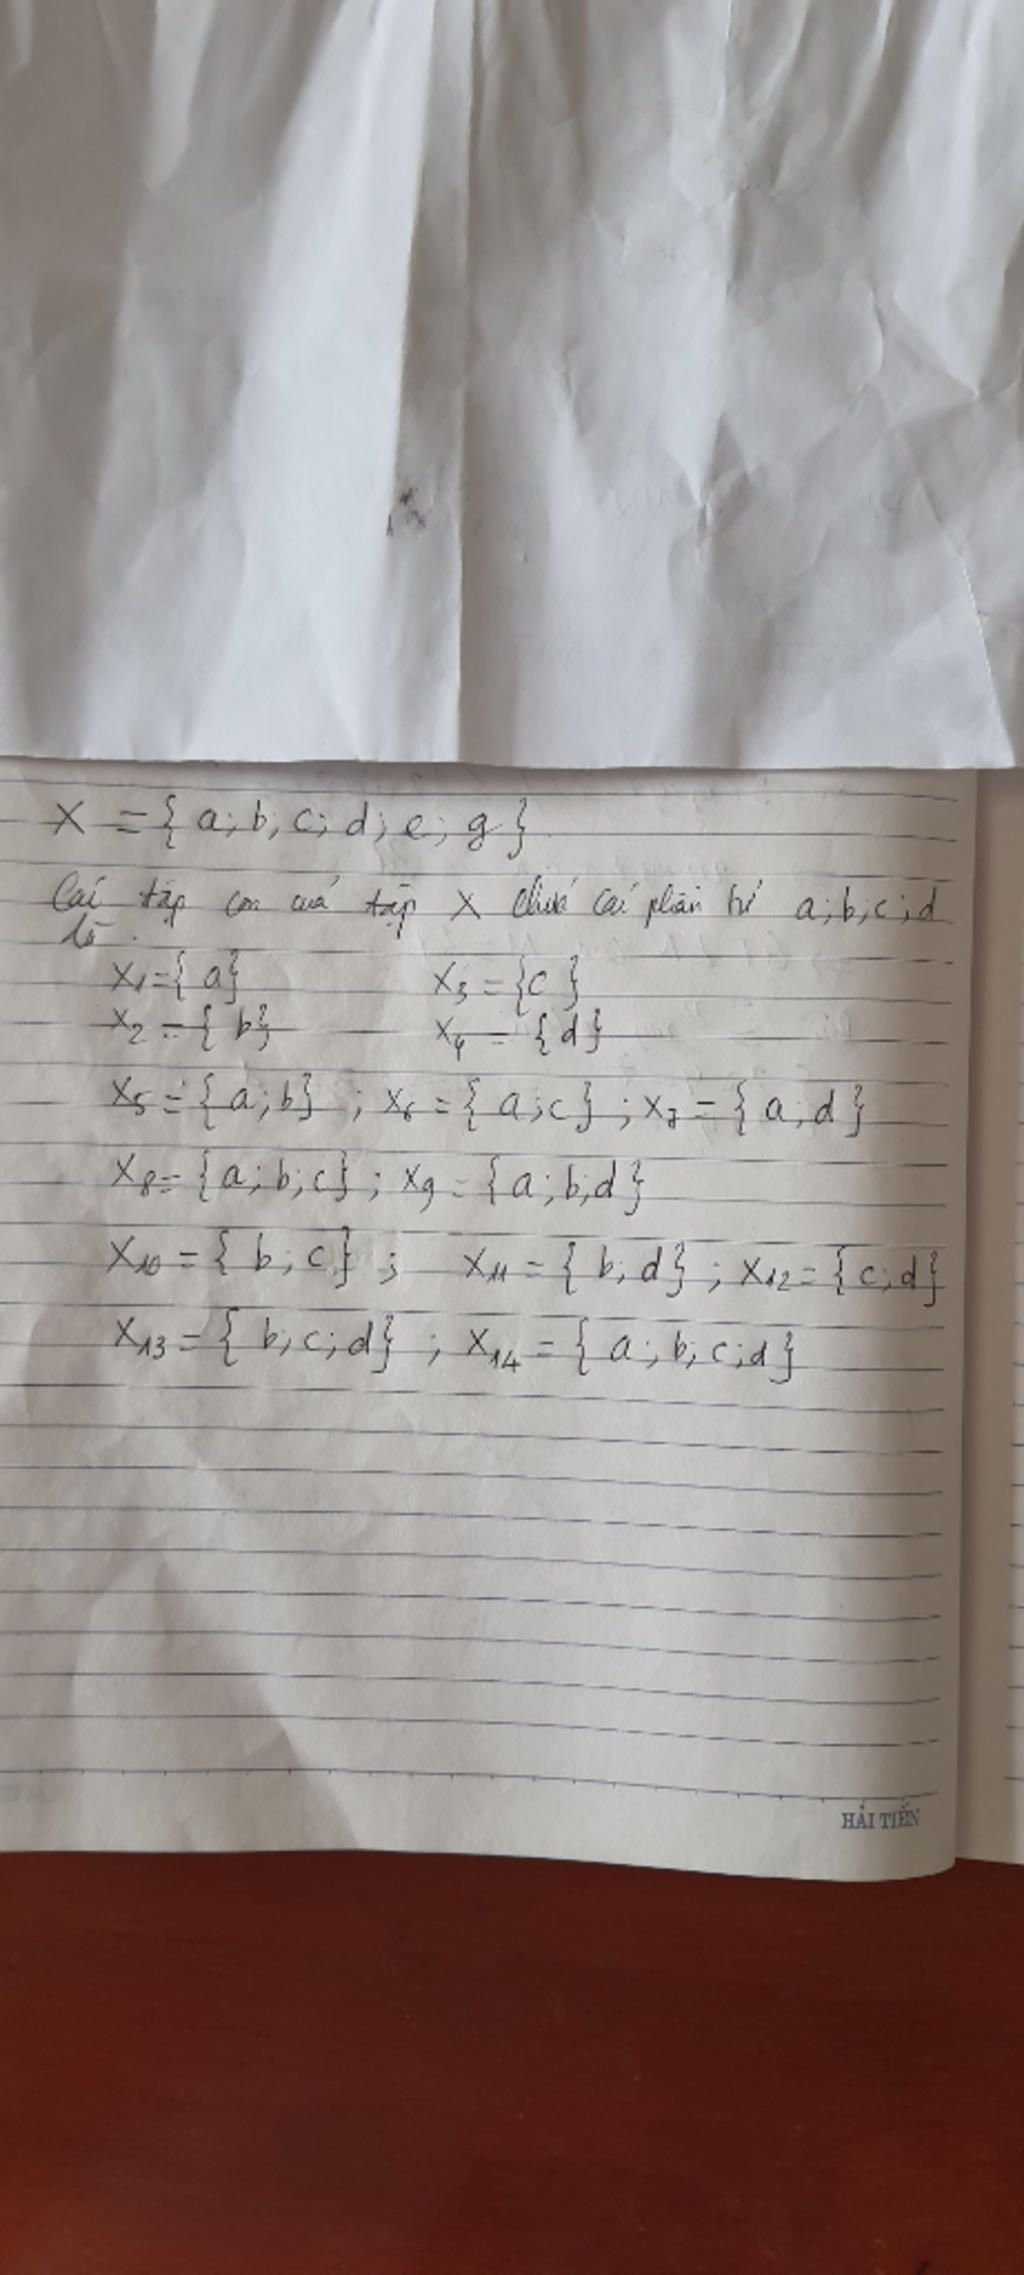 X = { a; b; c; d; e; g }
Các tập con của tập X chứa các phần tử a; b; c; d
là.
X₁ = { a } X₃ = { c }
X₂ = { b } X₄ = { d }
X₅ = { a ; b } ; X₆ = { a ; c } ; X₇ = { a ; d }
X₈ = { a ; b ; c } ; X₉ = { a ; b ; d }
X₁₀ = { b ; c } ; X₁₁ = { b ; d } ; X₁₂ = { c ; d }
X₁₃ = { b ; c ; d } ; X₁₄ = { a ; b ; c ; d }
HẢI TIẾN